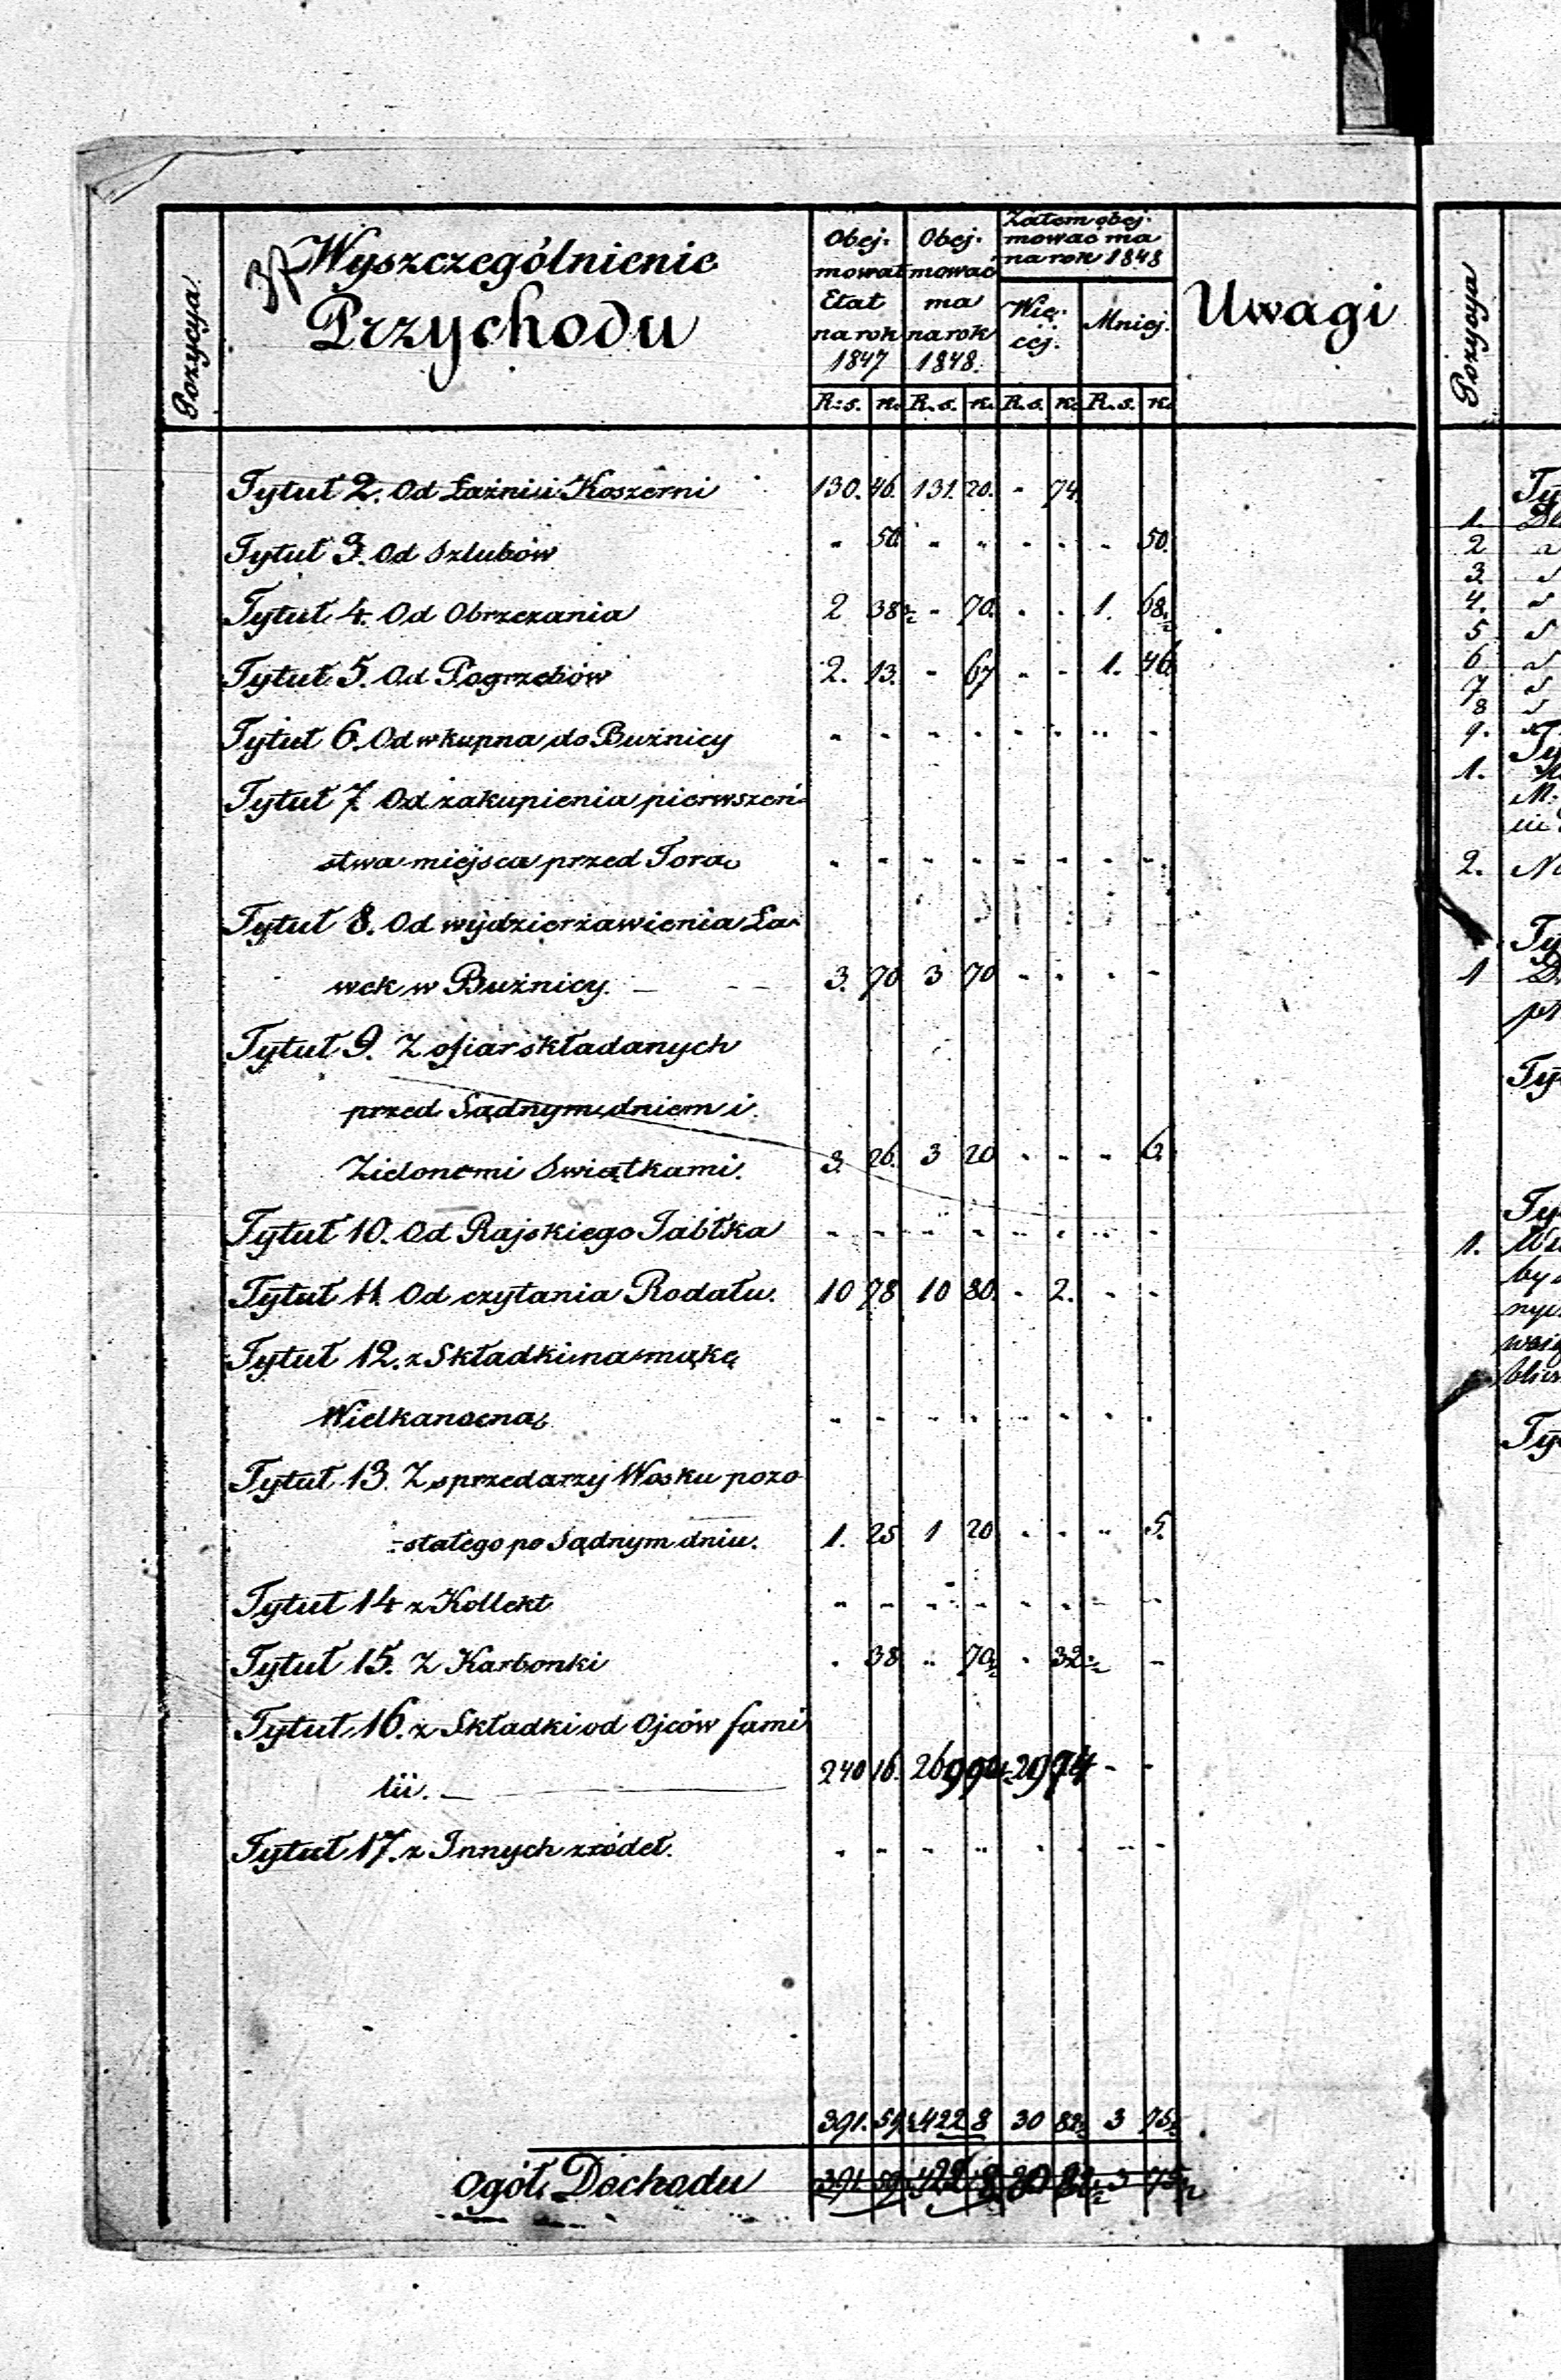 37
Pozycya
Wyszczególnienie
Przychodu
Obej-
mował
Etat
na rok
1847
Obej-
mować
ma
na rok
1848.
Zatem obej-
mować ma
na rok 1848
Wię-
céj.
Mniej.
Uwagi
R:s. k. R.s. k. R.s. k. R.s. k.
Tytuł 2. Od Łaźni i Koszerni 130. 46. 131. 20. - 74.
Tytuł 3. Od Szlubów " 50. " " - - " 50.
Tytuł 4. Od Obrzezania 2 38½ - 70. - - 1. 68½
Tytuł 5. Od Pogrzebów 2. 13. - 67 - - 1. 46.
Tytuł 6. Od wkupna do Bużnicy - - - - - - - -
Tytuł 7. Od zakupienia pierwszeń-
stwa miejsca przed Torą - - - - - - - -
Tytuł 8. Od wydzierżawienia Ła-
wek w Bużnicy. 3. 70 3 70 - - - -
Tytuł 9. Z ofiar składanych
przed Sądnym dniem i
Zielonemi Swiątkami. 3. 26. 3 20 - - - 6.
Tytuł 10. Od Rajskiego Jabłka - - - - - - - -
Tytuł 11. Od czytania Rodału. 10 78 10 80. - 2. - -
Tytuł 12. z Składki na mąkę
Wielkanocną - - - - - - - -
Tytuł 13. Z sprzedarzy Wosku pozo
-stałego po Sądnym dniu. 1. 25 1 20 - - - 5.
Tytuł 14 z Kollekt - - - - - - - -
Tytuł 15. Z Karbonki - 38 - 70½ - 32½ -
Tytuł 16. z Składki od Ojców fami
lii. 240 16. 29 74 - -
Tytuł 17. z Innych zródeł. - - - - - - - -
391. 59½ 422 8 30 82½ 3 75½
Ogół Dochodu
Pozycya
1.
2
3.
4.
5
6
7
8
9.
1.
2.
1
1.